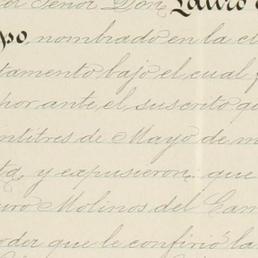 or Señor Don, Lauro
po, nombrado en la c
tamento bajo el cual f
hor ante el suscrito qu
intitres de Mayo de m
ta, y expusieron: que
uro Molinos del Cam
oder que le confirió la